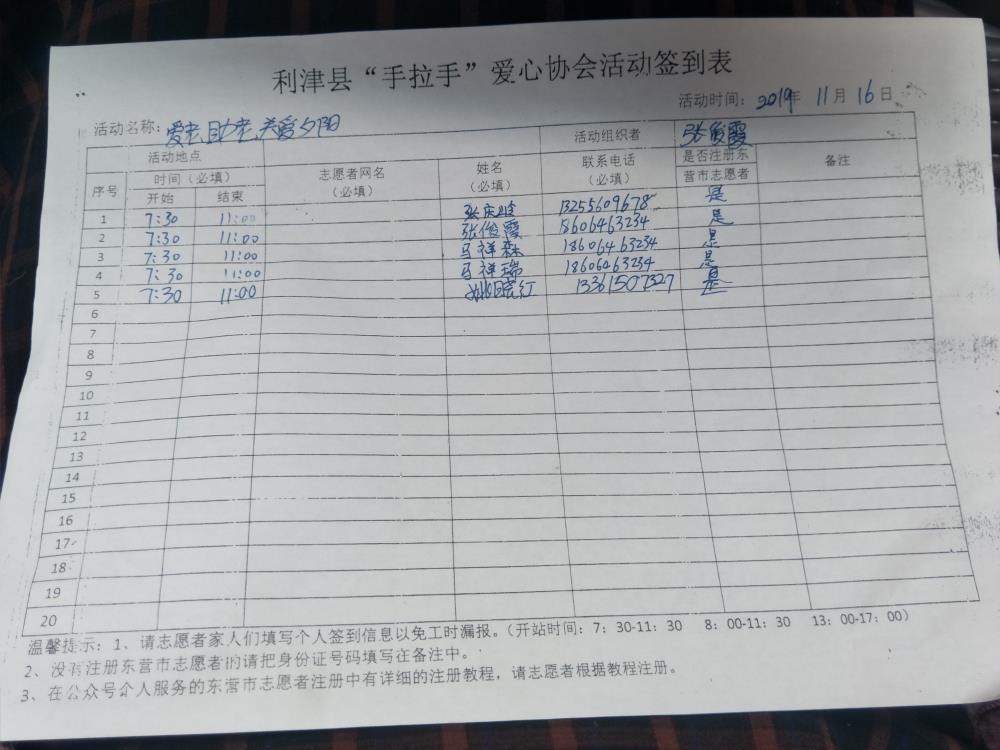 利津县“手拉手”爱心协会活动签到表
活动时间：2019年 11月 16日
活动名称：爱老助老关爱夕阳
活动地点 活动组织者 张俊霞
序号 时间（必填） 志愿者网名（必填） 姓名（必填） 联系电话（必填） 是否注册东营市志愿者 备注
开始 结束
1 7:30 11:00 张庆 13255609678 是
2 7:30 11:00 张俊霞 18606463234 是
3 7:30 11:00 马祥森 18606463234 是
4 7:30 11:00 马祥瑞 18606463234 是
5 7:30 11:00 姚红 13361507327 是
6
7
8
9
10
11
12
13
14
15
16
17
18
19
20
温馨提示：1、请志愿者家人们填写个人签到信息以免工时漏报。（开站时间：7：30-11：30 8：00-11：30 13：00-17：00）
2、没有注册东营市志愿者的请把身份证号码填写在备注中。
3、在公众号个人服务的东营市志愿者注册中有详细的注册教程，请志愿者根据教程注册。